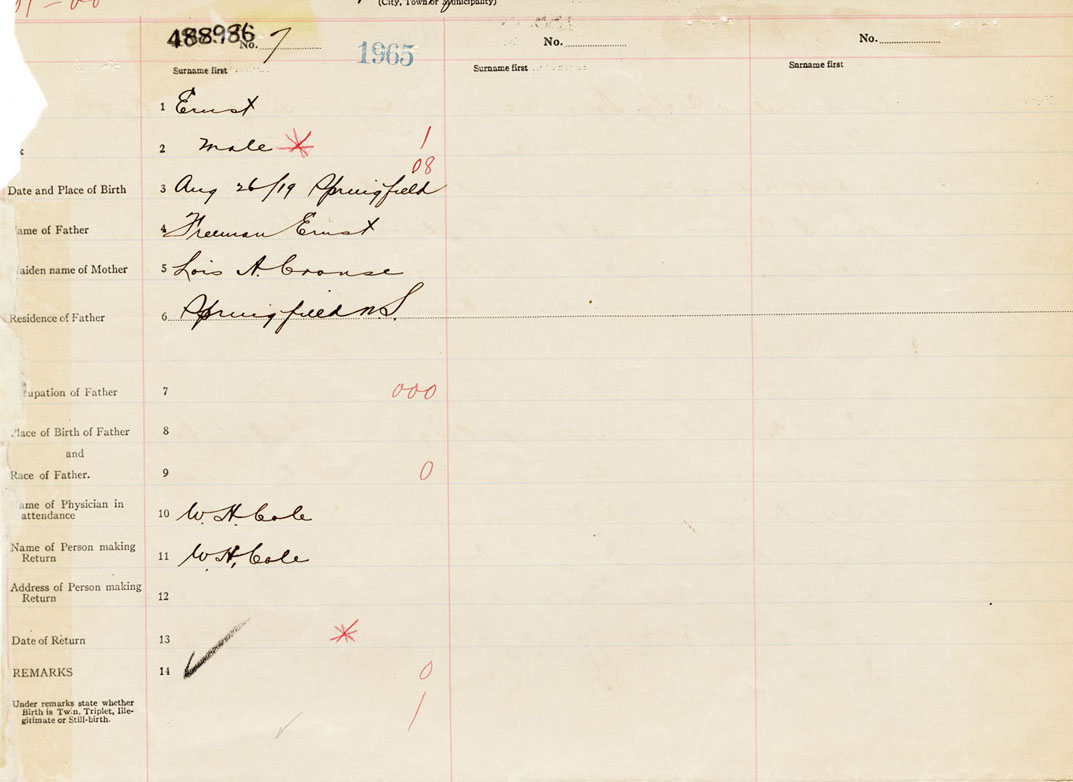 (City, Town or Municipality)
488986
No. 7
1965
No.
No.
Surname first
Surname first
Surname first
1 Ernst
2 Male * 1
08
Date and Place of Birth 3 Aug 26/19 Springfield
ame of Father 4 Freeman Ernst
aiden name of Mother 5 Lois A. Crouse
Residence of Father 6 Springfield N.S.
upation of Father 7 000
lace of Birth of Father 8
and
Race of Father. 9 0
ame of Physician in
attendance 10 W. H. Cole
Name of Person making
Return 11 W. H. Cole
Address of Person making
Return 12
Date of Return 13 *
REMARKS 14 0
Under remarks state whether
Birth is Twin, Triplet, Ille-
gitimate or Still-birth. 1